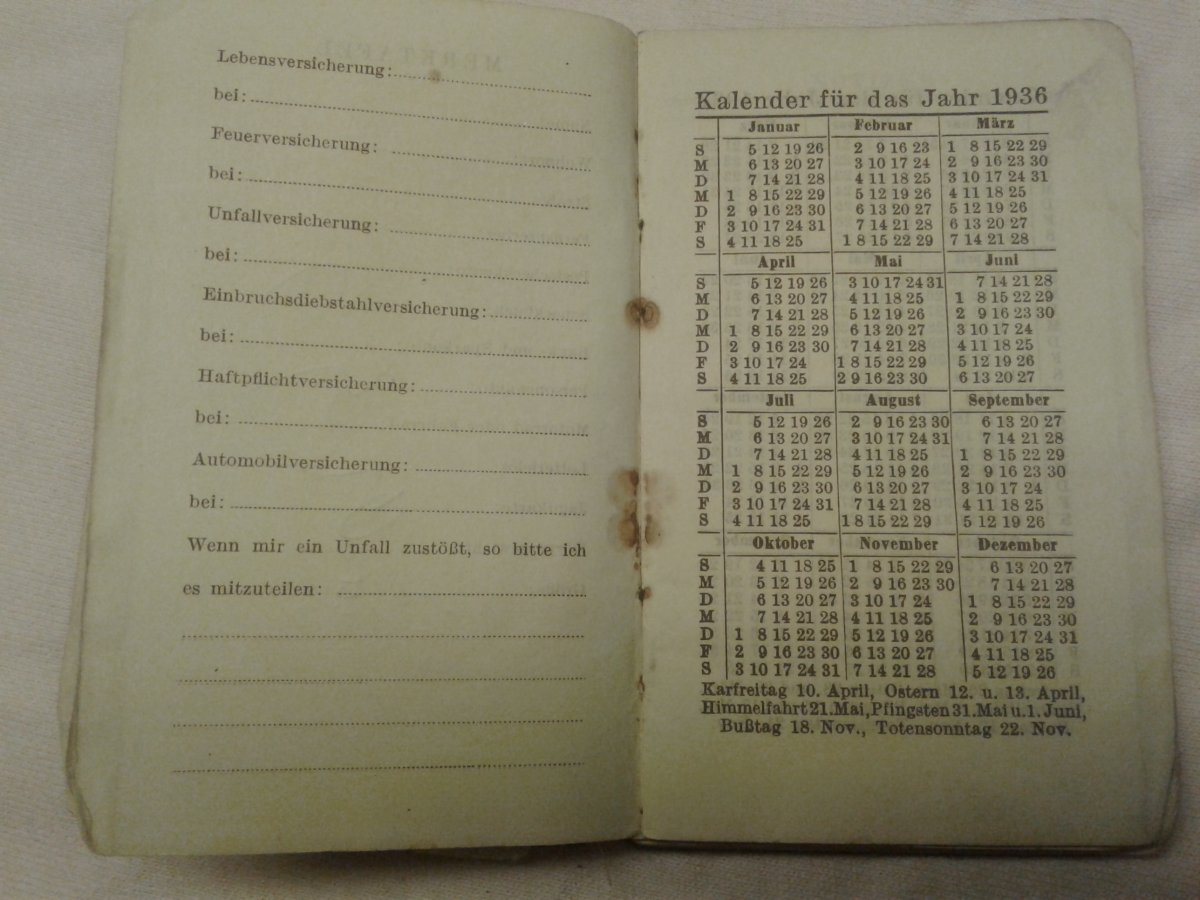 Lebensversicherung:
bei:
Feuerversicherung:
bei:
Unfallversicherung:
bei:
Einbruchsdiebstahlversicherung:
bei:
Haftpflichtversicherung:
bei:
Automobilversicherung:
bei:
Wenn mir ein Unfall zustößt, so bitte ich
es mitzuteilen:
Kalender für das Jahr 1936
Januar Februar März
S 5 12 19 26 2 9 16 23 1 8 15 22 29
M 6 13 20 27 3 10 17 24 2 9 16 23 30
D 7 14 21 28 4 11 18 25 3 10 17 24 31
M 1 8 15 22 29 5 12 19 26 4 11 18 25
D 2 9 16 23 30 6 13 20 27 5 12 19 26
F 3 10 17 24 31 7 14 21 28 6 13 20 27
S 4 11 18 25 1 8 15 22 29 7 14 21 28
April Mai Juni
S 5 12 19 26 3 10 17 24 31 7 14 21 28
M 6 13 20 27 4 11 18 25 1 8 15 22 29
D 7 14 21 28 5 12 19 26 2 9 16 23 30
M 1 8 15 22 29 6 13 20 27 3 10 17 24
D 2 9 16 23 30 7 14 21 28 4 11 18 25
F 3 10 17 24 1 8 15 22 29 5 12 19 26
S 4 11 18 25 2 9 16 23 30 6 13 20 27
Juli August September
S 5 12 19 26 2 9 16 23 30 6 13 20 27
M 6 13 20 27 3 10 17 24 31 7 14 21 28
D 7 14 21 28 4 11 18 25 1 8 15 22 29
M 1 8 15 22 29 5 12 19 26 2 9 16 23 30
D 2 9 16 23 30 6 13 20 27 3 10 17 24
F 3 10 17 24 31 7 14 21 28 4 11 18 25
S 4 11 18 25 1 8 15 22 29 5 12 19 26
Oktober November Dezember
S 4 11 18 25 1 8 15 22 29 6 13 20 27
M 5 12 19 26 2 9 16 23 30 7 14 21 28
D 6 13 20 27 3 10 17 24 1 8 15 22 29
M 7 14 21 28 4 11 18 25 2 9 16 23 30
D 1 8 15 22 29 5 12 19 26 3 10 17 24 31
F 2 9 16 23 30 6 13 20 27 4 11 18 25
S 3 10 17 24 31 7 14 21 28 5 12 19 26
Karfreitag 10. April, Ostern 12. u. 13. April,
Himmelfahrt 21. Mai, Pfingsten 31. Mai u. 1. Juni,
Bußtag 18. Nov., Totensonntag 22. Nov.